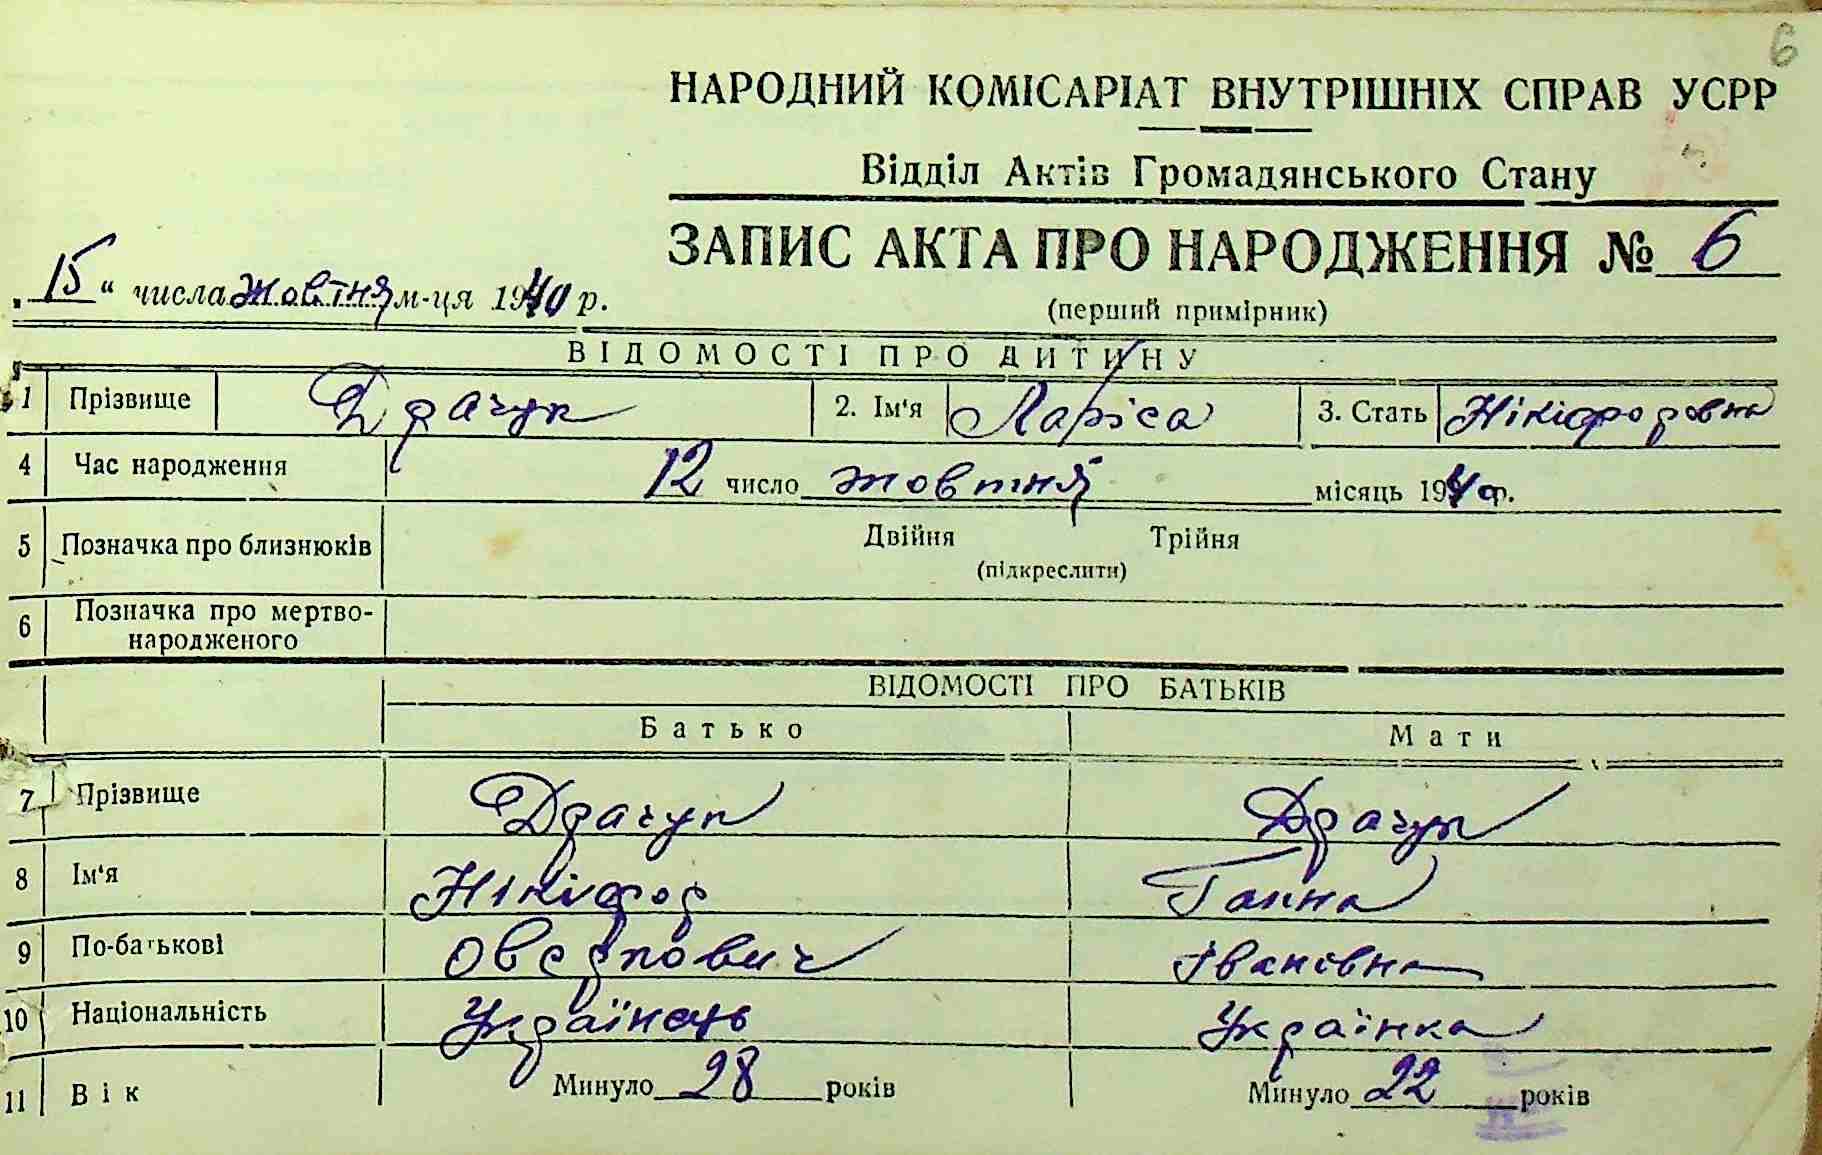 6
НАРОДНИЙ КОМІСАРІАТ ВНУТРІШНІХ СПРАВ УСРР
Відділ Актів Громадянського Стану
ЗАПИС АКТА ПРО НАРОДЖЕННЯ № 6
„15“ числа жовтня м-ця 1940 р.
(перший примірник)
ВІДОМОСТІ ПРО ДИТИНУ
1 Прізвище Драчук 2. Ім'я Ларіса 3. Стать Нікіфоровна
4 Час народження 12 число жовтня місяць 1940 р.
5 Позначка про близнюків Двійня Трійня
(підкреслити)
6 Позначка про мертво-
народженого
ВІДОМОСТІ ПРО БАТЬКІВ
Батько Мати
7 Прізвище Драчук Драчук
8 Ім'я Нікіфор Ганна
9 По-батькові Овєркович Івановна
10 Національність Українець Українка
11 Вік Минуло 28 років Минуло 22 років